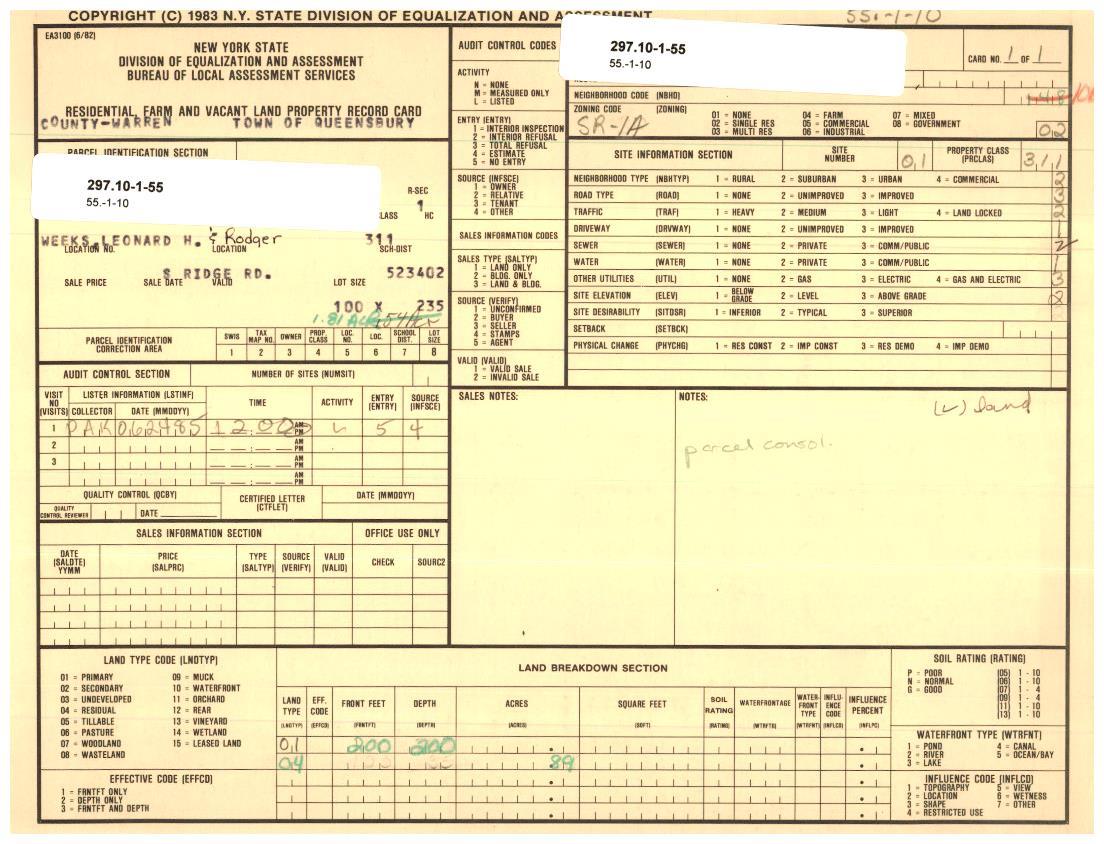 COPYRIGHT (C) 1983 N.Y. STATE DIVISION OF EQUALIZATION AND ASSESSMENT
55.-1-10
EA3100 (6/82)
NEW YORK STATE
DIVISION OF EQUALIZATION AND ASSESSMENT
BUREAU OF LOCAL ASSESSMENT SERVICES
RESIDENTIAL, FARM AND VACANT LAND PROPERTY RECORD CARD
COUNTY-WARREN TOWN OF QUEENSBURY
PARCEL IDENTIFICATION SECTION
297.10-1-55
55.-1-10
R-SEC
1
LASS HC
WEEKS, LEONARD H. & Rodger 311
LOCATION NO. LOCATION SCH-DIST
S RIDGE RD. 523402
SALE PRICE SALE DATE VALID LOT SIZE
100 X 235
1.81 Ac
PARCEL IDENTIFICATION CORRECTION AREA
SWIS TAX MAP NO. OWNER PROP. CLASS LOC. NO. LOC. SCHOOL DIST. LOT SIZE
1 2 3 4 5 6 7 8
AUDIT CONTROL SECTION NUMBER OF SITES (NUMSIT)
VISIT NO (VISITS) LISTER INFORMATION (LSTINF) TIME ACTIVITY ENTRY (ENTRY) SOURCE (INFSCE)
COLLECTOR DATE (MMDDYY)
1 PAK 062485 12:00 AM PM L 5 4
2 AM PM
3 AM PM
AM PM
QUALITY CONTROL (QCBY) CERTIFIED LETTER (CTFLET) DATE (MMDDYY)
QUALITY CONTROL REVIEWER DATE
SALES INFORMATION SECTION OFFICE USE ONLY
DATE (SALDTE) YYMM PRICE (SALPRC) TYPE (SALTYP) SOURCE (VERIFY) VALID (VALID) CHECK SOURC2
AUDIT CONTROL CODES
ACTIVITY
N = NONE
M = MEASURED ONLY
L = LISTED
ENTRY (ENTRY)
1 = INTERIOR INSPECTION
2 = INTERIOR REFUSAL
3 = TOTAL REFUSAL
4 = ESTIMATE
5 = NO ENTRY
SOURCE (INFSCE)
1 = OWNER
2 = RELATIVE
3 = TENANT
4 = OTHER
SALES INFORMATION CODES
SALES TYPE (SALTYP)
1 = LAND ONLY
2 = BLDG. ONLY
3 = LAND & BLDG.
SOURCE (VERIFY)
1 = UNCONFIRMED
2 = BUYER
3 = SELLER
4 = STAMPS
5 = AGENT
VALID (VALID)
1 = VALID SALE
2 = INVALID SALE
297.10-1-55
55.-1-10
CARD NO. 1 OF 1
NEIGHBORHOOD CODE (NBHD)
ZONING CODE (ZONING)
SR-1A
01 = NONE 04 = FARM 07 = MIXED
02 = SINGLE RES 05 = COMMERCIAL 08 = GOVERNMENT
03 = MULTI RES 06 = INDUSTRIAL
02
SITE INFORMATION SECTION SITE NUMBER 01 PROPERTY CLASS (PRCLAS) 311
NEIGHBORHOOD TYPE (NBHTYP) 1 = RURAL 2 = SUBURBAN 3 = URBAN 4 = COMMERCIAL 2
ROAD TYPE (ROAD) 1 = NONE 2 = UNIMPROVED 3 = IMPROVED 3
TRAFFIC (TRAF) 1 = HEAVY 2 = MEDIUM 3 = LIGHT 4 = LAND LOCKED 2
DRIVEWAY (DRVWAY) 1 = NONE 2 = UNIMPROVED 3 = IMPROVED 1
SEWER (SEWER) 1 = NONE 2 = PRIVATE 3 = COMM/PUBLIC 2
WATER (WATER) 1 = NONE 2 = PRIVATE 3 = COMM/PUBLIC 1
OTHER UTILITIES (UTIL) 1 = NONE 2 = GAS 3 = ELECTRIC 4 = GAS AND ELECTRIC 3
SITE ELEVATION (ELEV) 1 = BELOW GRADE 2 = LEVEL 3 = ABOVE GRADE 2
SITE DESIRABILITY (SITDSR) 1 = INFERIOR 2 = TYPICAL 3 = SUPERIOR
SETBACK (SETBCK)
PHYSICAL CHANGE (PHYCHG) 1 = RES CONST 2 = IMP CONST 3 = RES DEMO 4 = IMP DEMO
SALES NOTES:
NOTES:
(L) land
parcel consol.
LAND TYPE CODE (LNDTYP)
01 = PRIMARY 09 = MUCK
02 = SECONDARY 10 = WATERFRONT
03 = UNDEVELOPED 11 = ORCHARD
04 = RESIDUAL 12 = REAR
05 = TILLABLE 13 = VINEYARD
06 = PASTURE 14 = WETLAND
07 = WOODLAND 15 = LEASED LAND
08 = WASTELAND
EFFECTIVE CODE (EFFCD)
1 = FRNTFT ONLY
2 = DEPTH ONLY
3 = FRNTFT AND DEPTH
LAND BREAKDOWN SECTION
LAND TYPE EFF. CODE FRONT FEET DEPTH ACRES SQUARE FEET SOIL RATING WATERFRONTAGE WATER-FRONT TYPE INFLU-ENCE CODE INFLUENCE PERCENT
(LNDTYP) (EFFCD) (FRNTFT) (DEPTH) (ACRES) (SQFT) (RATING) (WTRFTG) (WTRFNT) (INFLCD) (INFLPC)
01 200 200
04 .89
SOIL RATING (RATING)
P = POOR (05) 1 - 10
N = NORMAL (06) 1 - 10
G = GOOD (07) 1 - 4
(09) 1 - 4
(11) 1 - 10
(13) 1 - 10
WATERFRONT TYPE (WTRFNT)
1 = POND 4 = CANAL
2 = RIVER 5 = OCEAN/BAY
3 = LAKE
INFLUENCE CODE (INFLCD)
1 = TOPOGRAPHY 5 = VIEW
2 = LOCATION 6 = WETNESS
3 = SHAPE 7 = OTHER
4 = RESTRICTED USE